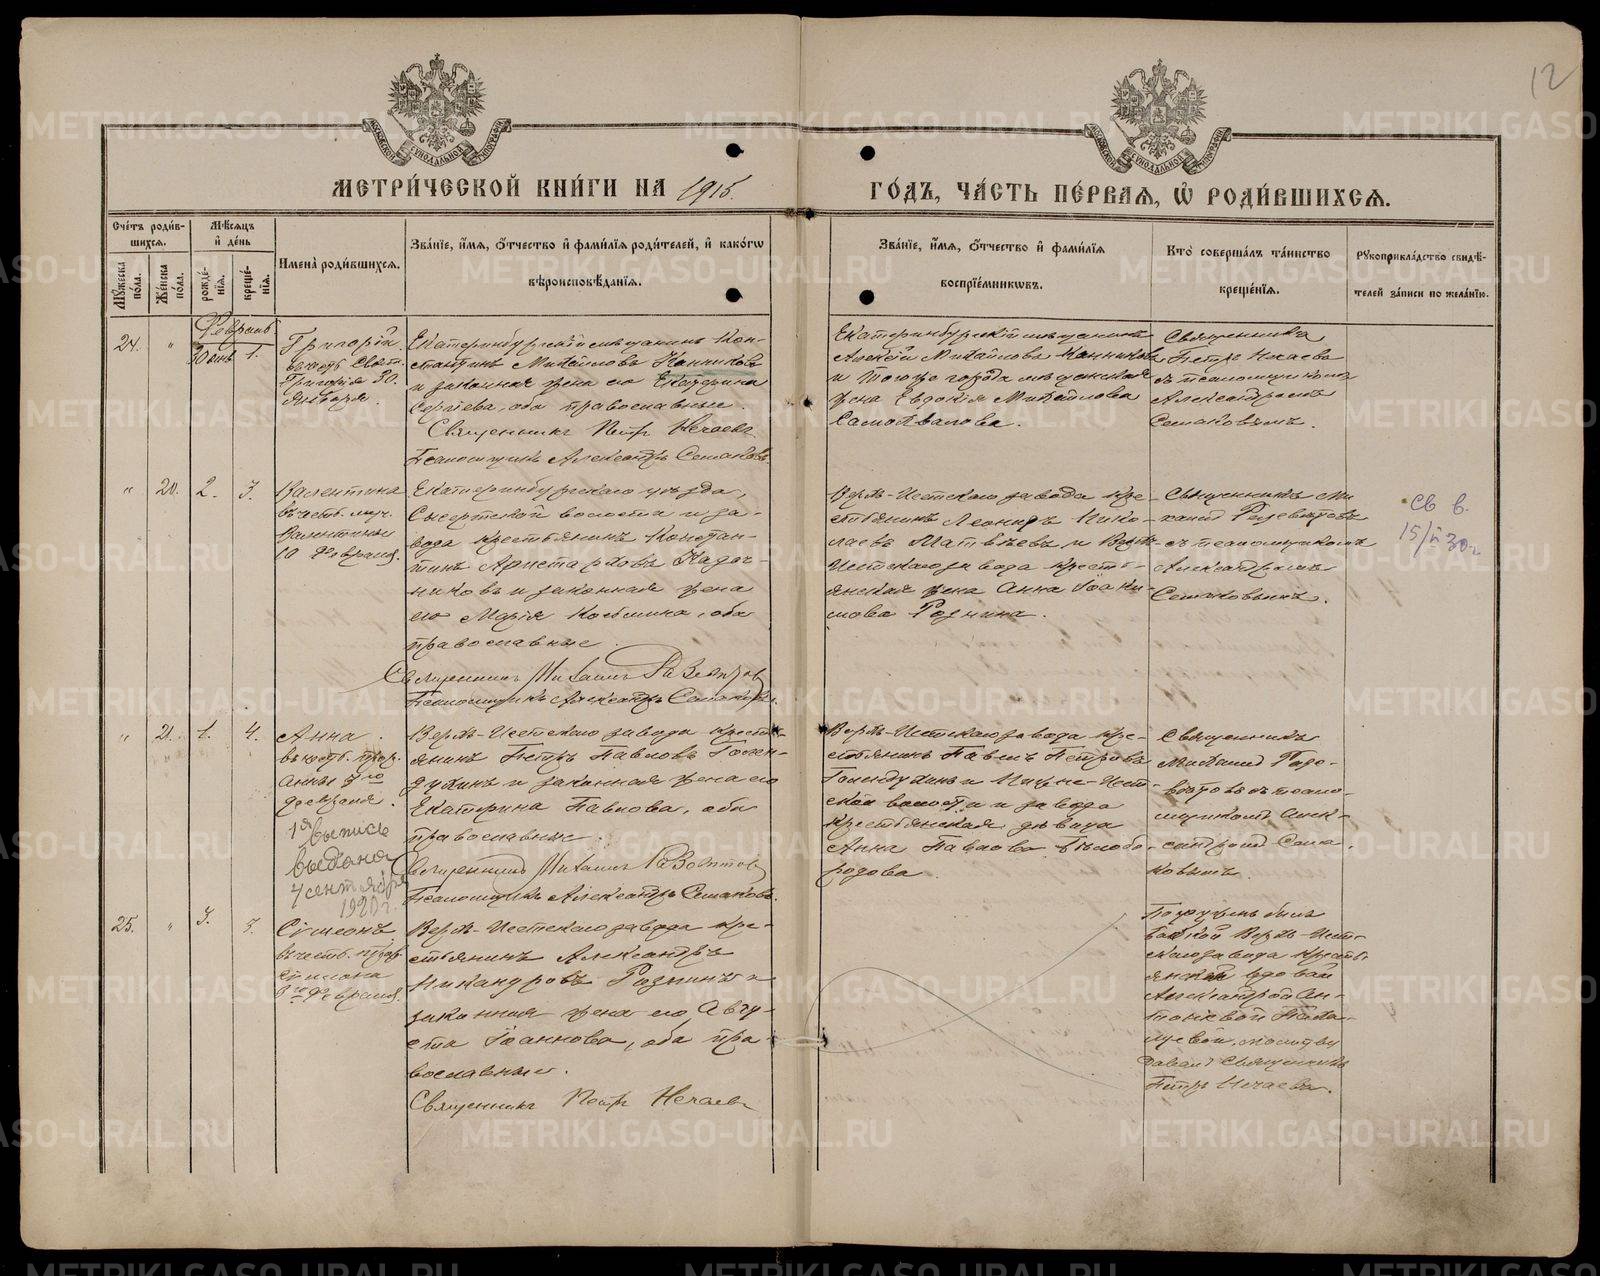 12
МЕТРИ́ЧЕСКОЙ КНИ́ГИ НА 1915.
ГО́ДЪ, ЧА́СТЬ ПЕ́РВАЯ, Ѽ РОДИ́ВШИХСЯ.
Сче́тъ роди́в-
шихся.
Мꙋ́жеска по́ла.
Же́нска по́ла.
Мѣ́сяцъ
и҆ де́нь
рожде́-
нїя.
креще́-
нїя.
Имена̀ роди́вшихся.
Зва́нїе, и҆́мя, ѻ҆́тчество и҆ фами́лїя роди́телей, и҆ како́гѡ
вѣроисповѣ́данїя.
Зва́нїе, и҆́мя, ѻ҆́тчество и҆ фами́лїя
воспрїе́мникѡвъ.
Кто̀ соверша́лъ та́инство
креще́нїя.
Рꙋкоприкла́дство свидѣ́-
телей за́писи по жела́нїю.
Февраль
24. " 30 янв 1.
Григорій
въ честь Свят.
Григорія 30.
Января.
Екатеринбургскій мѣщанинъ Кон-
стантинъ Михайловъ Канниковъ
и законная жена его Екатерина
Сергіева, оба православные.
Священникъ Петръ Нечаевъ
Псаломщикъ Александръ Семаковъ.
Екатеринбургскій мѣщанинъ
Алексѣй Михайловъ Канниковъ
и того же города мѣщанская
жена Евдокія Михайлова
Самохвалова.
Священникъ
Петръ Нечаевъ
съ псаломщикомъ
Александромъ
Семаковымъ.
" 20. 2. 3.
Валентина
въ честь муч.
Валентины
10 Февраля.
Екатеринбургскаго уѣзда,
Сысертской волости и за-
вода крестьянинъ Констан-
тинъ Аристарховъ Кадоч-
никовъ и законная жена
его Марія Козьмина, оба
православные
Священникъ Михаилъ
Псаломщикъ Александръ Семаковъ.
Верхъ-Исетскаго завода кре-
стьянинъ Леонидъ Нико-
лаевъ Матвѣевъ и Верхъ-
Исетскаго завода кресть-
янская жена Анна Іоаки-
мова Рознина.
Священникъ Ми-
хаилъ
съ псаломщикомъ
Александромъ
Семаковымъ.
св в.
15/II 30 г.
" 21. 1. 4.
Анна.
въ честь прор.
Анны 3го
февраля.
1я выпись
выдана
4 сентября
1920 г.
Верхъ-Исетскаго завода кресть-
янинъ Петръ Павловъ Голен-
духинъ и законная жена его
Екатерина Павлова, оба
православные.
Священникъ Михаилъ
Псаломщикъ Александръ Семаковъ.
Верхъ-Исетскаго завода кре-
стьянинъ Павелъ Петровъ
Голендухинъ и Нижне-Исет-
ской волости и завода
крестьянская дѣвица
Анна Павлова Бѣлобо-
родова.
Священникъ
Михаилъ
съ псало-
мщикомъ Алек-
сандромъ Сема-
ковымъ.
25. " 3. 5.
Симеонъ
въ честь прор.
Симеона
3го Февраля.
Верхъ-Исетскаго завода кре-
стьянинъ Александръ
Никандровъ Рознинъ и
законная жена его Авгу-
ста Іоаннова, оба пра-
вославные.
Священникъ Петръ Нечаевъ
Погруженъ былъ
бабкой Верхъ-Исет-
скаго завода кресть-
янской вдовой
Александрой Ан-
тоновой
молитву
давалъ Священникъ
Петръ Нечаевъ.
METRIKI.GASO-URAL.RU